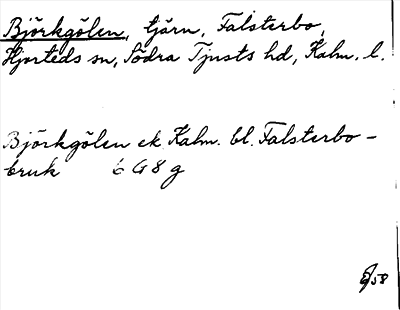 Björkgölen, tjärn, Falsterbo,
Hjorteds sn, Södra Tjusts hd, Kalm. l.
Björkgölen ek. Kalm. bl. Falsterbo-
bruk 6 G 8 g
58